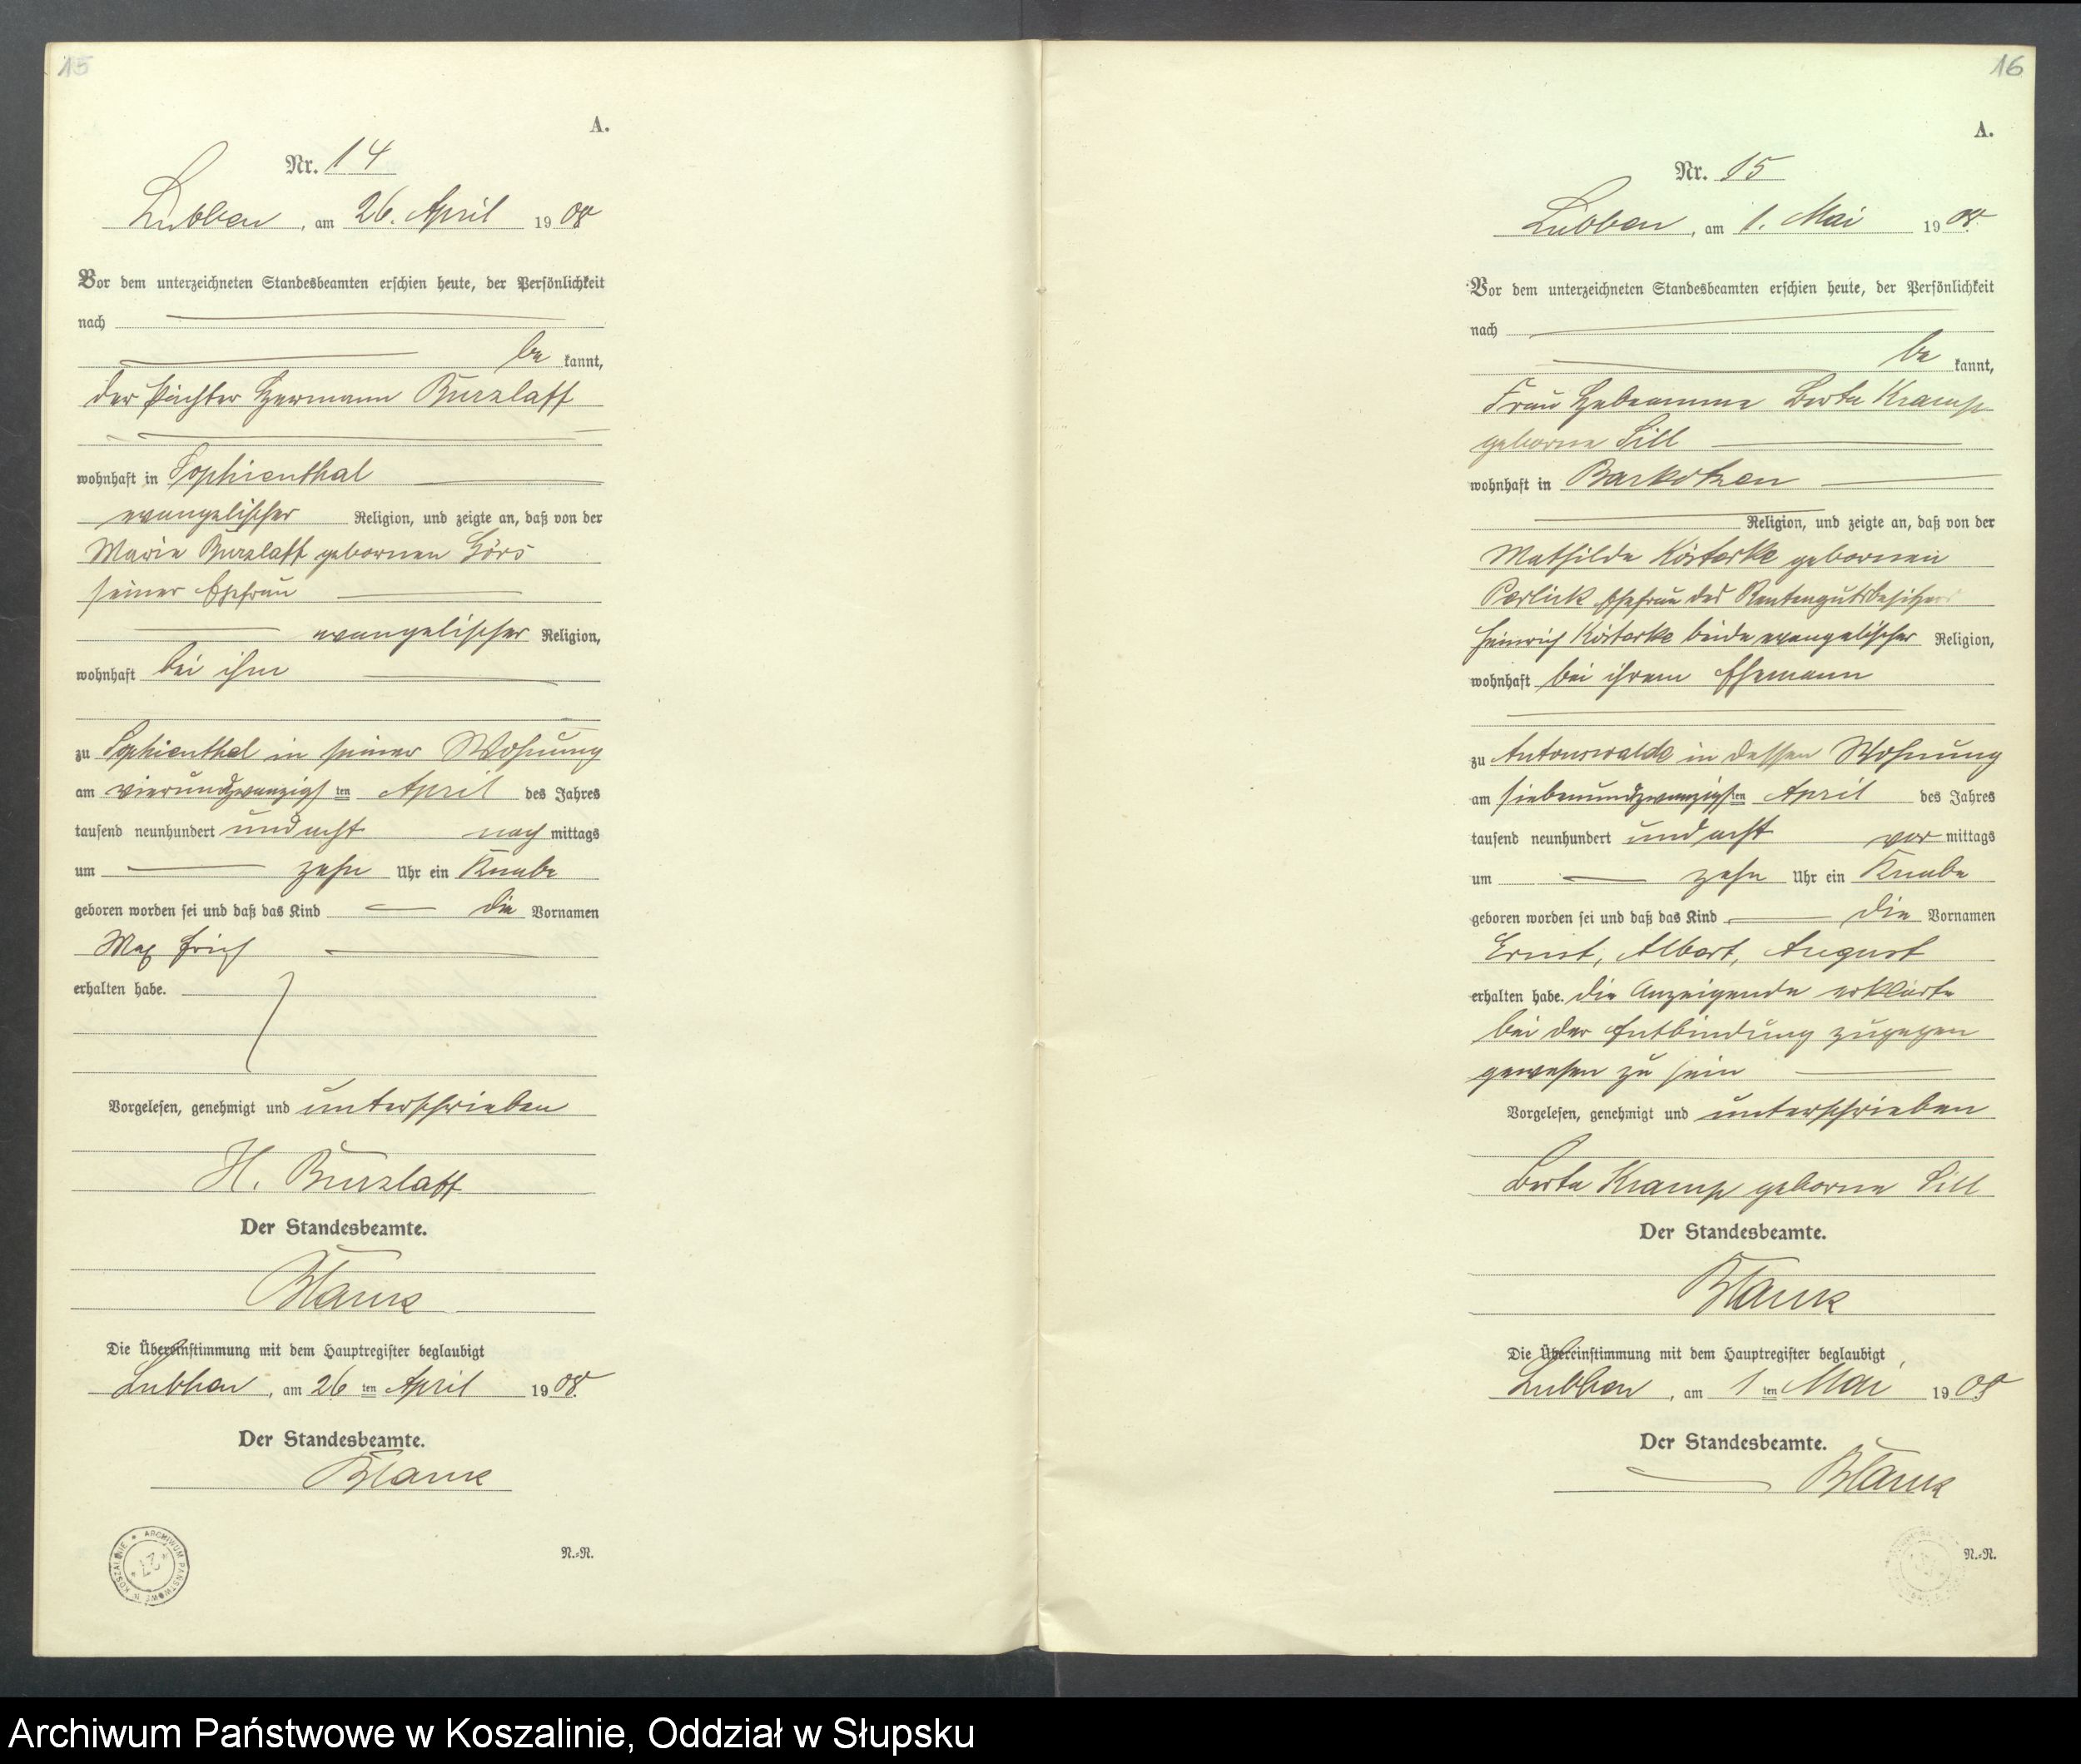 15
A.
Nr. 14
Lubben, am 26. April 1908
Vor dem unterzeichneten Standesbeamten erschien heute, der Persönlichkeit
nach
be kannt,
der Pächter Hermann Burzlaff
wohnhaft in Sophienthal
evangelischer Religion, und zeigte an, daß von der
Marie Burzlaff gebornen Görs
seiner Ehefrau
evangelischer Religion,
wohnhaft bei ihm
zu Sophienthal in seiner Wohnung
am vierundzwanzigsten April des Jahres
tausend neunhundert und acht nach mittags
um zehn Uhr ein Knabe
geboren worden sei und daß das Kind die Vornamen
Max Erich
erhalten habe.
Vorgelesen, genehmigt und unterschrieben
H. Burzlaff
Der Standesbeamte.
Die Übereinstimmung mit dem Hauptregister beglaubigt
Lubben, am 26 ten April 1908.
Der Standesbeamte.
ARCHIWUM PAŃSTWOWE W KOSZALINIE
N.=N.
16
A.
Nr. 15
Lubben, am 1. Mai 1908.
Vor dem unterzeichneten Standesbeamten erschien heute, der Persönlichkeit
nach
be kannt,
Frau Hebeamme Berta Kramp
geborne Sill
wohnhaft in Barkotzen
Religion, und zeigte an, daß von der
Mathilde Kösterke gebornen
Perlick Ehefrau des Rentengutsbesitzers
Heinrich Kösterke beide evangelischer Religion,
wohnhaft bei ihrem Ehemann
zu Antonswalde in dessen Wohnung
am siebenundzwanzigsten April des Jahres
tausend neunhundert und acht vor mittags
um zehn Uhr ein Knabe
geboren worden sei und daß das Kind die Vornamen
Ernst, Albert, August
erhalten habe. die Anzeigende erklärte
bei der Entbindung zugegen
gewesen zu sein
Vorgelesen, genehmigt und unterschrieben
Berta Kramp geborne Sill
Der Standesbeamte.
Die Übereinstimmung mit dem Hauptregister beglaubigt
Lubben, am 1 ten Mai 1908
Der Standesbeamte.
N.=N.
Archiwum Państwowe w Koszalinie, Oddział w Słupsku